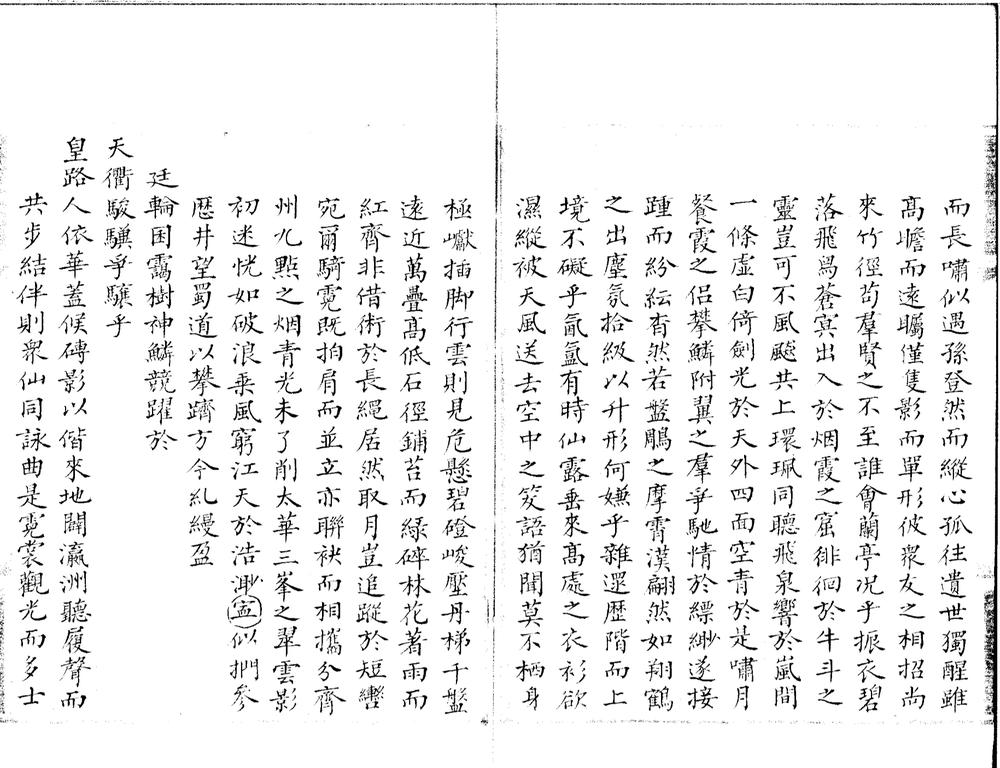 而長嘯似遇孫登然而縱心孤往遺世獨醒雖
高瞻而遠矚僅隻影而單形彼衆友之相招尚
來竹徑苟羣賢之不至誰會蘭亭况乎振衣碧
落飛舃蒼㝠出入於烟霞之窟徘徊於牛斗之
靈豈可不風飈共上環珮同聽飛泉響於嵐間
一條虛白倚劍光於天外四面空青於是嘯月
餐霞之侣攀鱗附翼之羣爭馳情於縹緲遂接
踵而紛紜杳然若盤鵰之摩霄漢翩然如翔鶴
之出塵氛拾級以升形何嫌乎雜遝歴階而上
境不礙乎氤氲有時仙露垂來高處之衣衫欲
濕縱被天風送去空中之笑語猶聞莫不栖身
極巘插脚行雲則見危懸碧磴峻壓丹梯千盤
遠近萬疊高低石徑鋪苔而綠碎林花著雨而
紅齊非借術於長繩居然取月豈追蹤於短轡
宛爾騎霓既拍肩而並立亦聯袂而相攜分齊
州九點之烟青光未了削太華三峯之翠雲影
初迷恍如破浪乘風窮江天於浩渺㝎似捫參
歴井望蜀道以攀躋方今糺縵盈
廷輪囷靄樹神鱗競躍於
天衢駿驥爭驤乎
皇路人依華蓋候磚影以偕來地闢瀛洲聽履聲而
共步結伴則衆仙同詠曲是霓裳觀光而多士